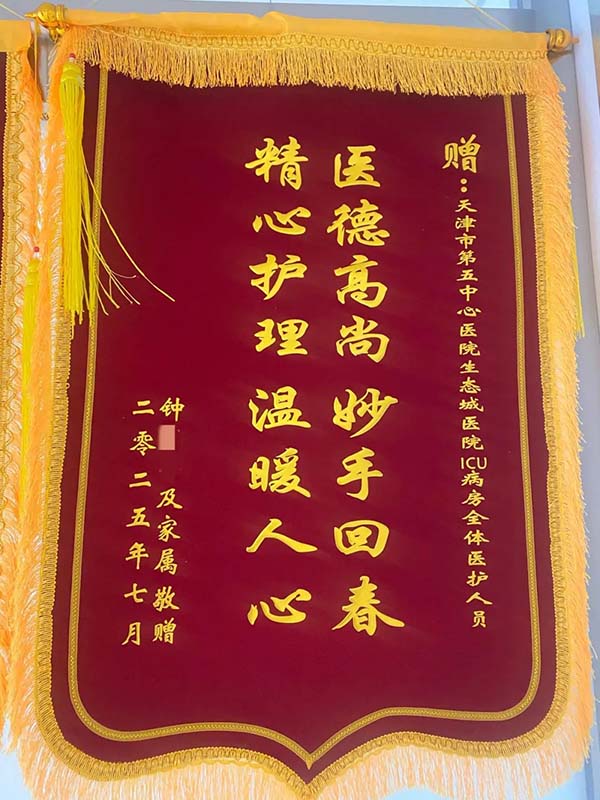 赠：天津市第五中心医院生态城医院ICU病房全体医护人员
医德高尚 妙手回春
精心护理 温暖人心
钟 及家属敬赠
二零二五年七月